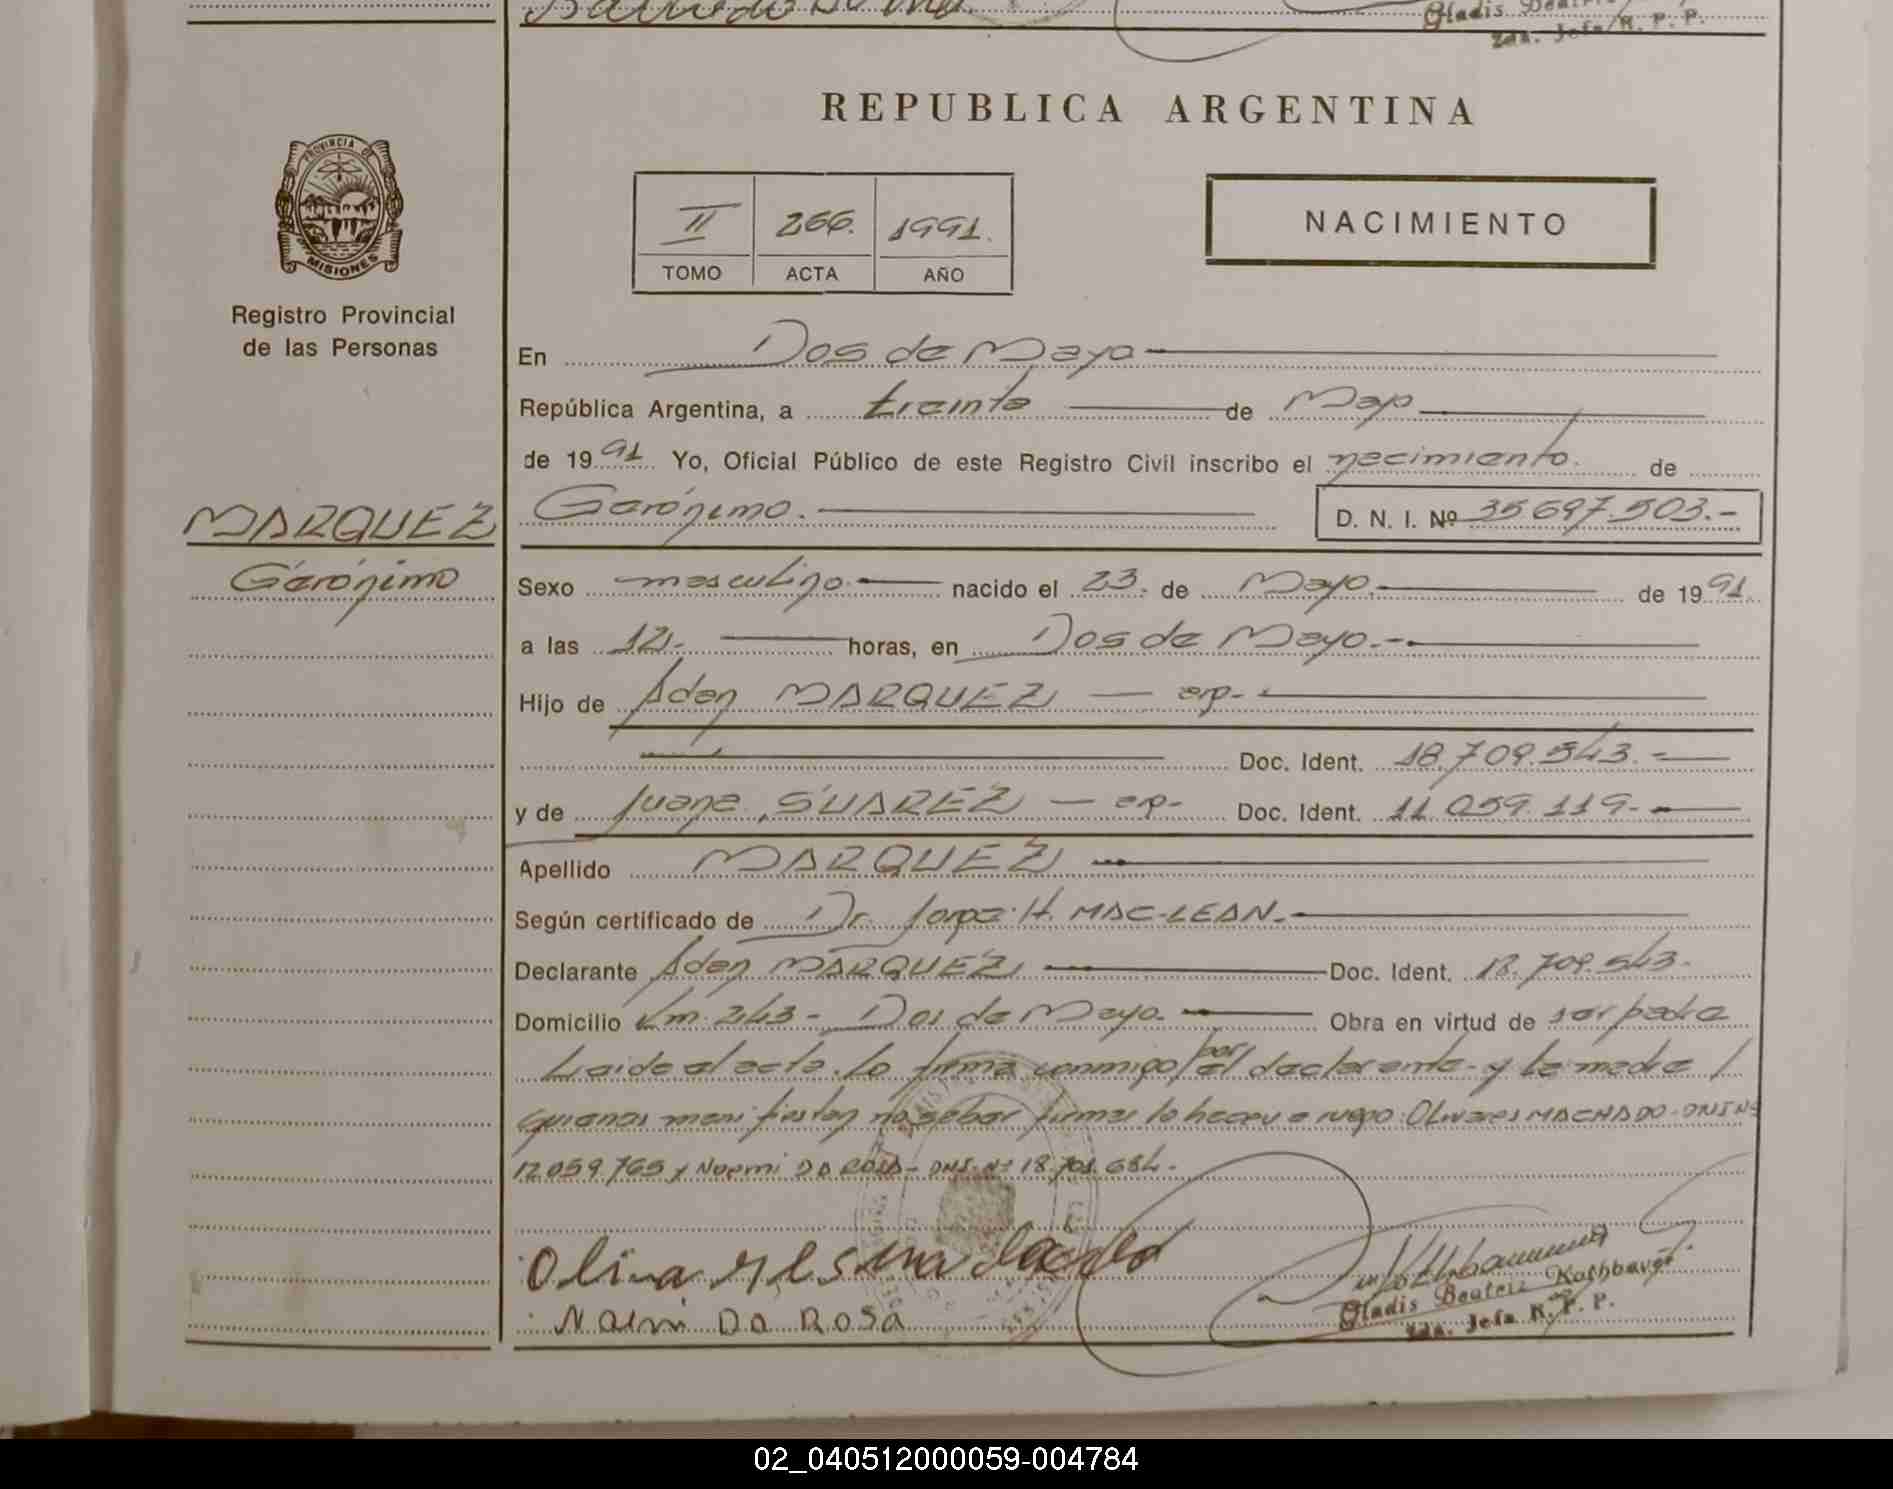 Gladis Beatriz
2da. Jefa R. P. P.
REPUBLICA ARGENTINA
PROVINCIA DE
MISIONES
II 266. 1991.
TOMO ACTA AÑO
NACIMIENTO
Registro Provincial
de las Personas
En Dos de Mayo
República Argentina, a treinta de Mayo
de 1991 Yo, Oficial Público de este Registro Civil inscribo el nacimiento. de
MARQUEZ
Gerónimo
Gerónimo. D. N. I. Nº 35697.503.-
Sexo masculino. nacido el 23. de Mayo. de 1991.
a las 12.- horas, en Dos de Mayo.-
Hijo de Aden MARQUEZ — arg.-
Doc. Ident. 18.709.543.-
y de Juana SUAREZ — arg.- Doc. Ident. 11.059.119.-
Apellido MARQUEZ
Según certificado de Dr. Jorge H. MAC-LEAN.-
Declarante Aden MARQUEZ Doc. Ident. 18.709.543.-
Domicilio km. 243 - Dos de Mayo. Obra en virtud de ser padre
Leida el acta. La firma conmigo por el declarante y la madre
quienes manifiestan no saber firmar lo hacen a ruego: Olivares MACHADO - DNI Nº
12.059.765 y Noemi DA ROSA - DNI. Nº 18.701.684.-
Olivares machado
Naemi DA ROSA
Gladis Beatriz
2da. Jefa R. P. P.
02_040512000059-004784